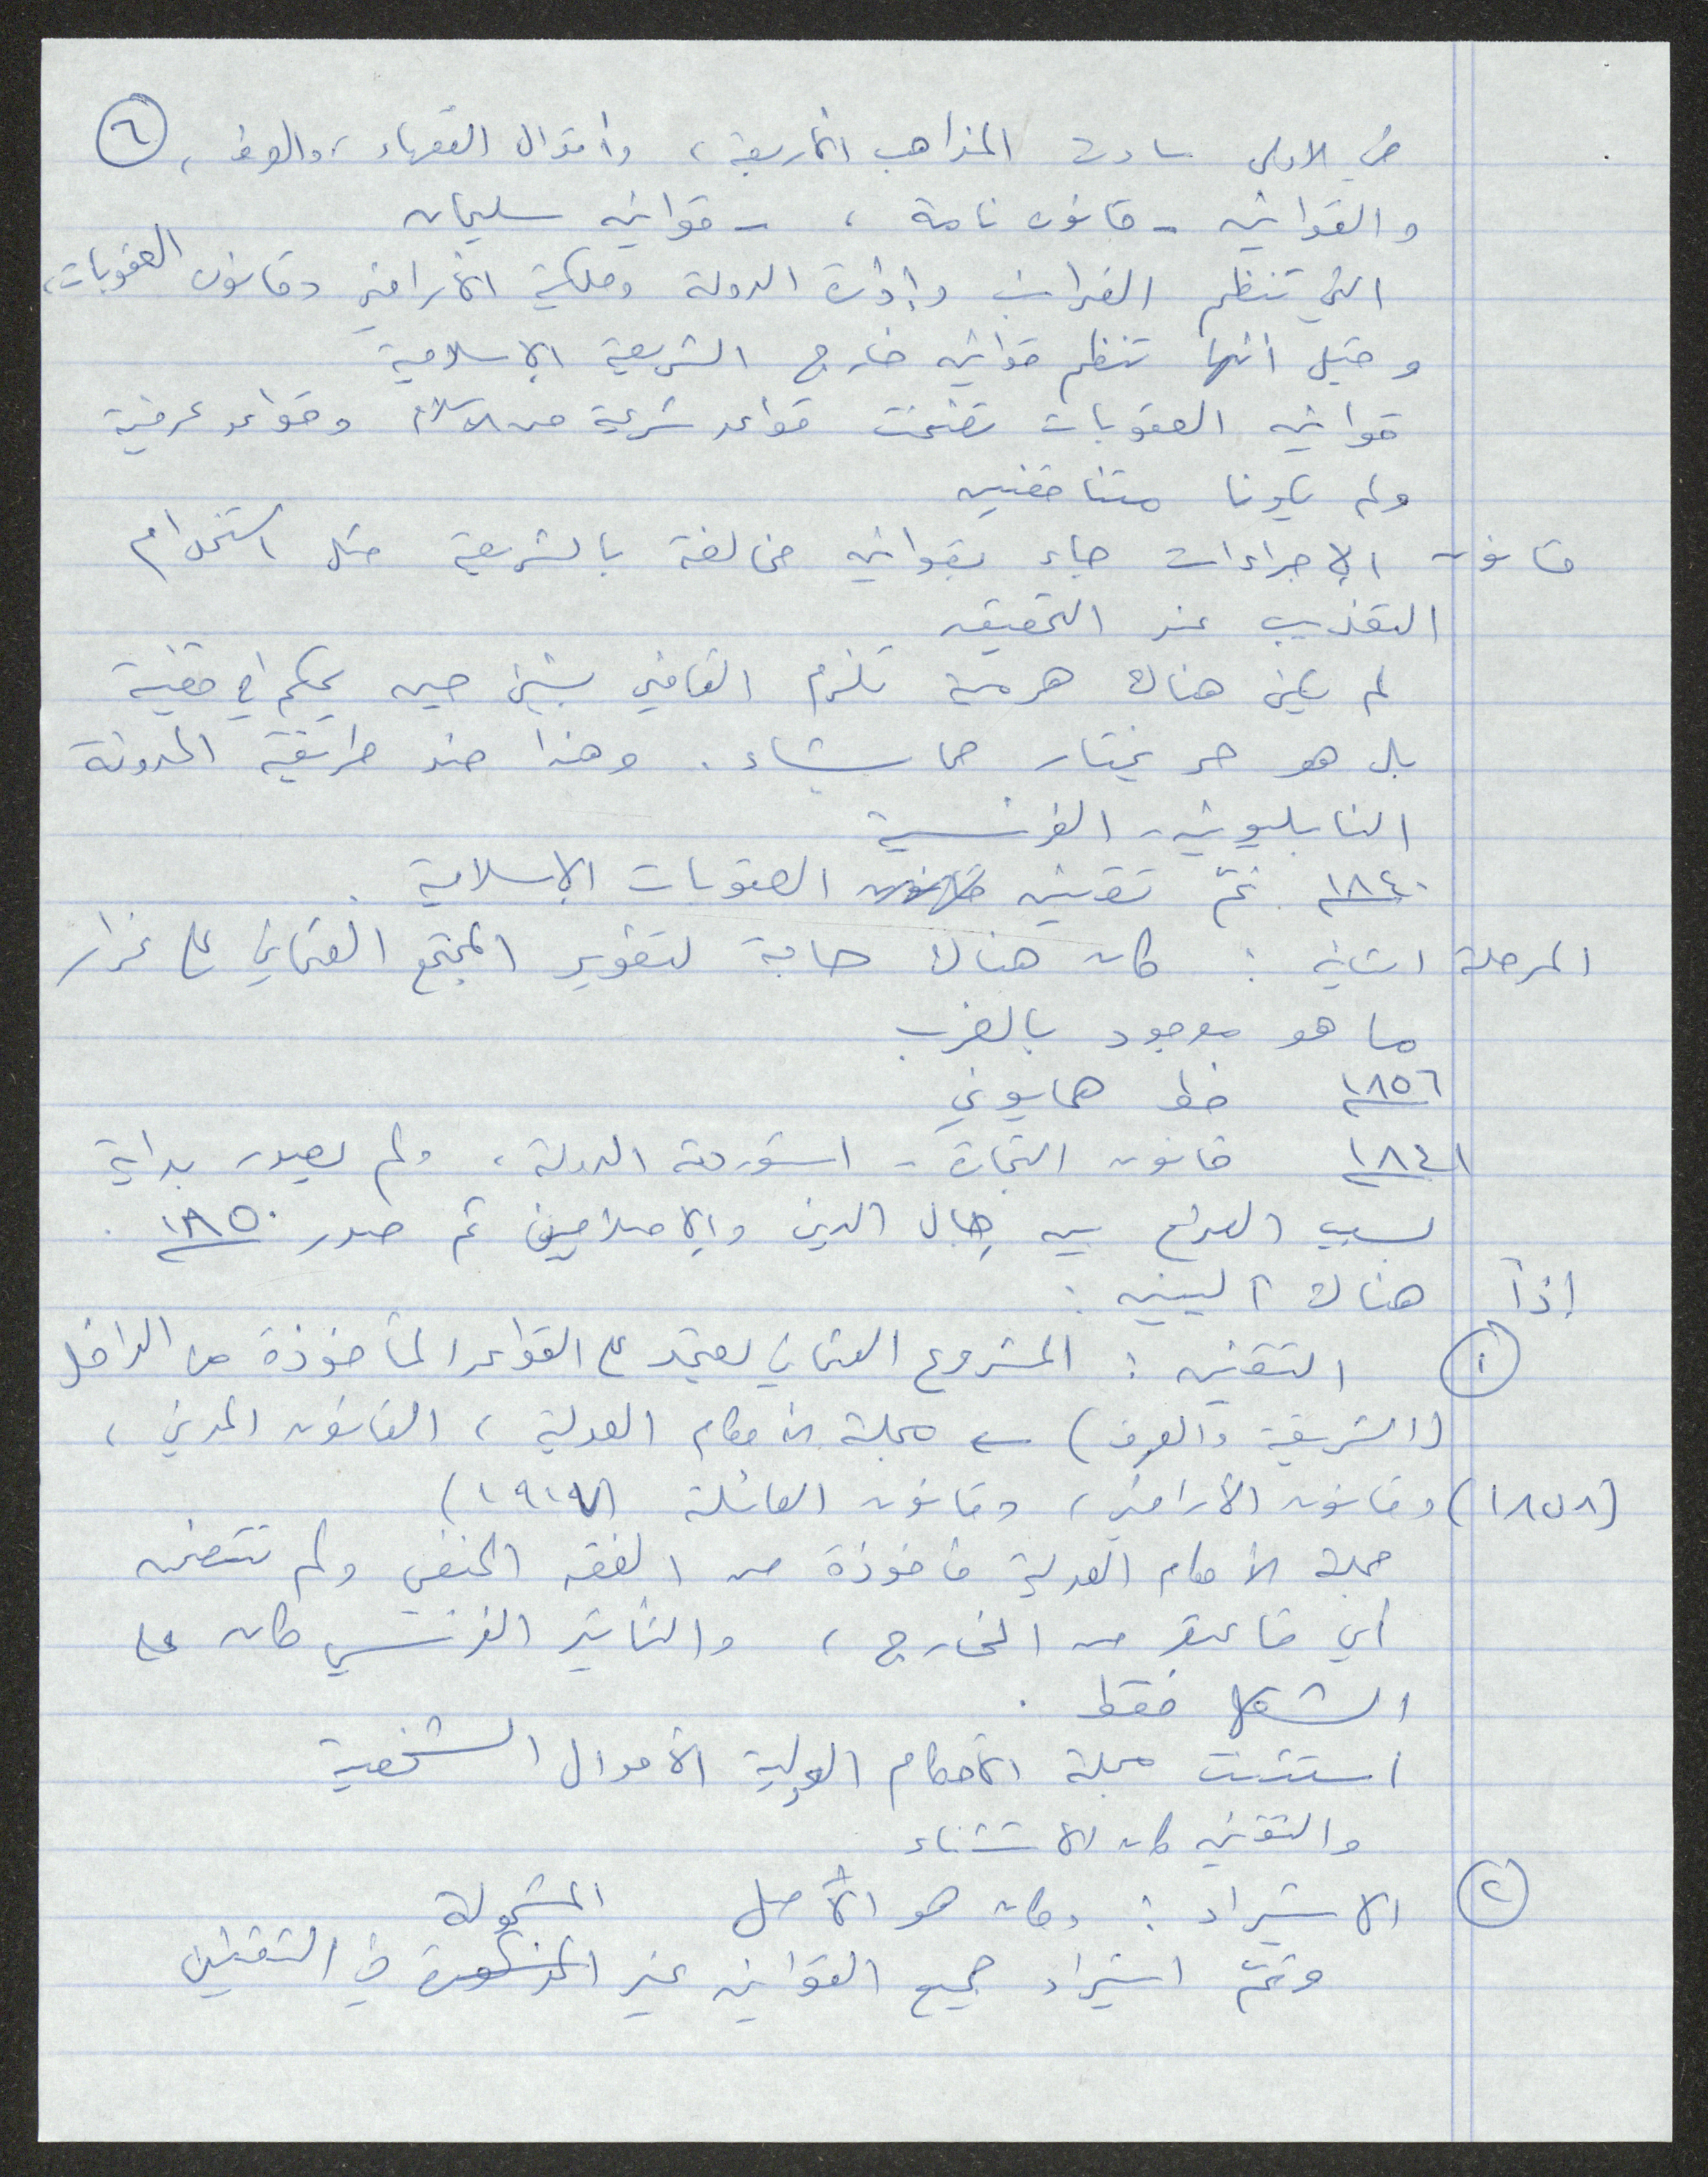 في الاولى سادت المذاهب الأربعة، وأقوال الفقهاء، والعرف، ٦
والقوانين - قانون نامة، - قوانين سليمان
التي تنظم الضرائب وإدارة الدولة وملكية الأراضي وقانون العقوبات،
وقيل انها تنظم قوانين خارج الشريعة الإسلامية
قوانين العقوبات تضمنت قواعد شرعية من الاسلام وقواعد عرفية
ولم يكونا متناقضين
قانون الإجراءات جاء بقوانين مخالفة بالشريعة مثل استخدام
التعذيب عند التحقيق
لم يكن هناك هرمية تلزم القاضي بشيء حين يحكم في قضية
بل هو حر يختار ما يشاء. وهذا ضد طريقة المدونة
النابليونية - الفرنسية
١٨٤٠ تمّ تقنين العقوبات الإسلامية.
المرحلة الثانية: كان هناك حاجة لتطوير المجتمع العثماني على غرار
ما هو موجود بالغرب
١٨٥٦ خط همايوني
١٨٤١ قانون التجارة - استوردته الدولة، ولم يصدر بداية
بسبب الصراع بين رجال الدين والإصلاحيين ثم صدر ١٨٥٠.
إذاً هناك آليتين:
١ التقنين: المشروع العثماني يعتمد على القواعد المأخوذة من الداخل
(الشريعة والعرف) ← مجلة الأحكام العدلية، القانون المدني،
(١٨٥٨) وقانون الأراضي، وقانون العائلة (١٩١٧)
مجلة الأحكام العدلية مأخوذة من الفقه الحنفي ولم تتضمن
أي قاعدة من الخارج، والتأثير الفرنسي كان على
الشكل فقط.
استثنت مجلة الأحكام العدلية الأحوال الشخصية
والتقنين كان الاستثناء
٢ الاستيراد: وكان هو الأصل
وتمّ استيراد جميع القوانين غير المشمولة في التقنين